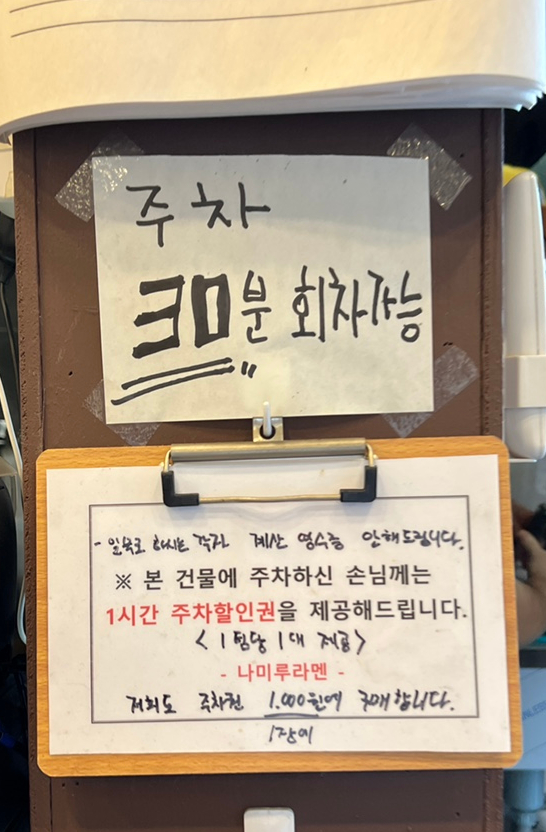 주차
30분 회차가능
- 일부로 하시는 각자 계산 영수증 안해드립니다.
※ 본 건물에 주차하신 손님께는
1시간 주차할인권을 제공해드립니다.
< 1팀당 1대 제공 >
- 나미루라멘 -
저희도 주차권 1,000원에 구매합니다.
1장에